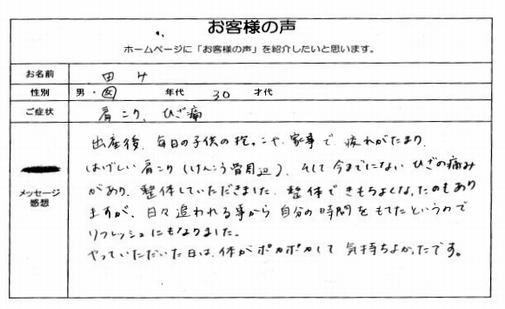 お客様の声
ホームページに「お客様の声」を紹介したいと思います。
お名前 田 み
性別 男・女 年代 30 才代
ご症状 肩こり、ひざ痛
出産後、毎日の子供の抱っこや、家事で、疲れがたまり、
はげしい肩こり(けんこう骨周辺)、そして今までにない ひざの痛み
メッセージ
感想
があり、整体していただきました。整体できもちよくなったのもあり
ますが、日々追われる事から自分の時間をもてたというので
リフレッシュにもなりました。
やっていただいた日は、体がポカポカして 気持ちよかったです。